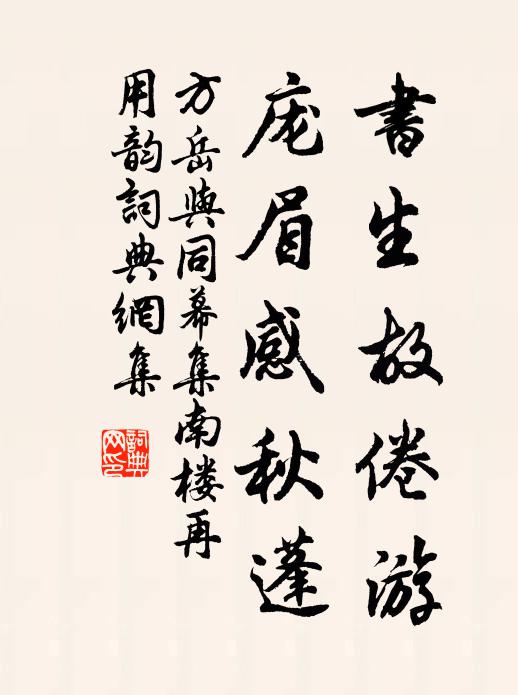 書生故倦游
庞眉感秋蓬
方岳與同幕集南楼再
用韵詞典網集
詞典网印